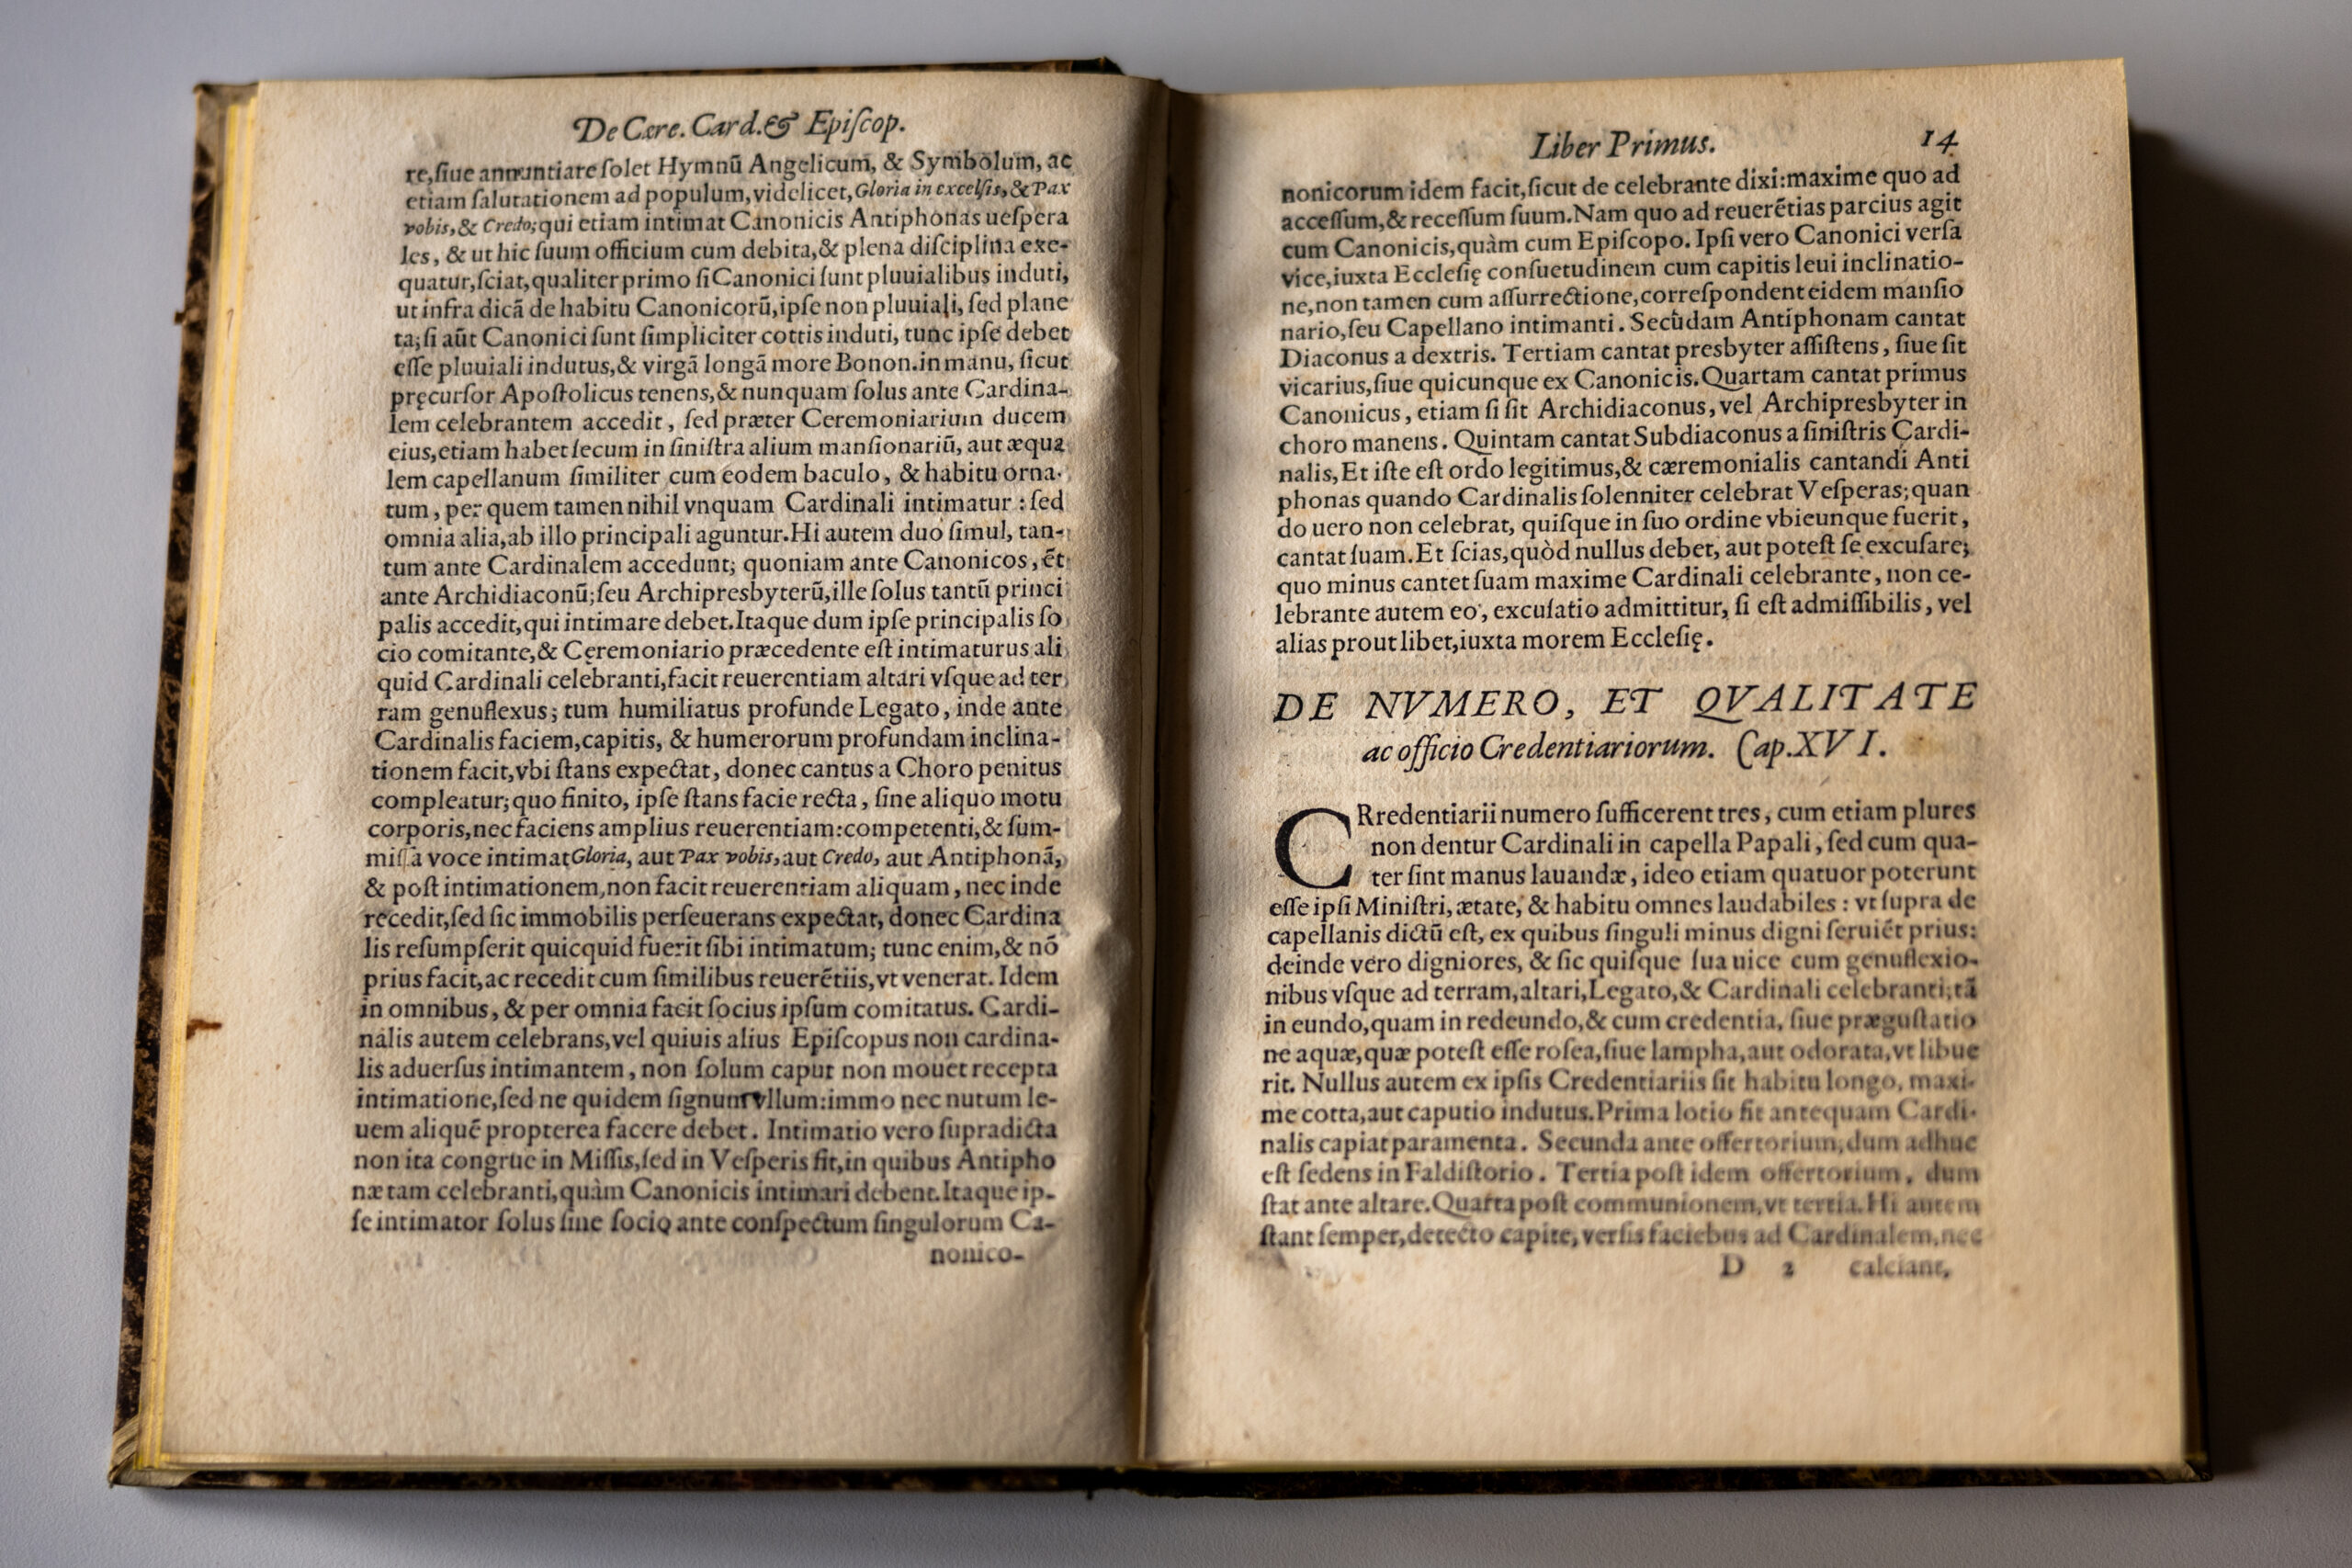 De Cære. Card. & Epiſcop.
re,ſiue annuntiare ſolet Hymnũ Angelicum, & Symbolum, ac
etiam ſalutationem ad populum,videlicet,Gloria in excelſis,& Pax
vobis,& Credo;qui etiam intimat Canonicis Antiphonas ueſpera
les, & ut hic ſuum officium cum debita,& plena diſciplina exe-
quatur,ſciat,qualiter primo ſi Canonici ſunt pluuialibus induti,
ut infra dicã de habitu Canonicorũ,ipſe non pluuiali, ſed plane
ta;ſi aũt Canonici ſunt ſimpliciter cottis induti, tunc ipſe debet
eſſe pluuiali indutus,& virgã longã more Bonon.in manu, ſicut
pręcurſor Apoſtolicus tenens,& nunquam ſolus ante Cardina-
lem celebrantem accedit, ſed præter Ceremoniarium ducem
eius,etiam habet ſecum in ſiniſtra alium manſionariũ, aut æqua
lem capellanum ſimiliter cum eodem baculo, & habitu orna-
tum, per quem tamen nihil vnquam Cardinali intimatur : ſed
omnia alia,ab illo principali aguntur.Hi autem duo ſimul, tan-
tum ante Cardinalem accedunt; quoniam ante Canonicos, ẽt
ante Archidiaconũ;ſeu Archipresbyterũ,ille ſolus tantũ princi
palis accedit,qui intimare debet.Itaque dum ipſe principalis ſo
cio comitante,& Cęremoniario præcedente eſt intimaturus ali
quid Cardinali celebranti,facit reuerentiam altari vſque ad ter
ram genuflexus; tum humiliatus profunde Legato, inde ante
Cardinalis faciem,capitis, & humerorum profundam inclina-
tionem facit,vbi ſtans expectat, donec cantus a Choro penitus
compleatur;quo finito, ipſe ſtans facie recta, ſine aliquo motu
corporis,nec faciens amplius reuerentiam:competenti,& ſum-
miſſa voce intimat Gloria, aut Pax vobis,aut Credo, aut Antiphonã,
& poſt intimationem,non facit reuerentiam aliquam, nec inde
recedit,ſed ſic immobilis perſeuerans expectat, donec Cardina
lis reſumpſerit quicquid fuerit ſibi intimatum; tunc enim,& nõ
prius facit,ac recedit cum ſimilibus reuerẽtiis,vt venerat. Idem
in omnibus, & per omnia facit ſocius ipſum comitatus. Cardi-
nalis autem celebrans,vel quiuis alius Epiſcopus non cardina-
lis aduerſus intimantem, non ſolum caput non mouet recepta
intimatione,ſed ne quidem ſignum vllum:immo nec nutum le-
uem aliquẽ propterea facere debet. Intimatio vero ſupradicta
non ita congrue in Miſſis,ſed in Veſperis fit,in quibus Antipho
næ tam celebranti,quàm Canonicis intimari debent.Itaque ip-
ſe intimator ſolus ſine ſocio ante conſpectum ſingulorum Ca-
nonico-
Liber Primus. 14
nonicorum idem facit,ſicut de celebrante dixi:maxime quo ad
acceſſum,& receſſum ſuum.Nam quo ad reuerẽtias parcius agit
cum Canonicis,quàm cum Epiſcopo. Ipſi vero Canonici verſa
vice,iuxta Eccleſię conſuetudinem cum capitis leui inclinatio-
ne,non tamen cum aſſurrectione,correſpondent eidem manſio
nario,ſeu Capellano intimanti. Secũdam Antiphonam cantat
Diaconus a dextris. Tertiam cantat presbyter aſſiſtens, ſiue ſit
vicarius,ſiue quicunque ex Canonicis.Quartam cantat primus
Canonicus, etiam ſi ſit Archidiaconus, vel Archipresbyter in
choro manens. Quintam cantat Subdiaconus a ſiniſtris Cardi-
nalis,Et iſte eſt ordo legitimus,& cæremonialis cantandi Anti
phonas quando Cardinalis ſolenniter celebrat Veſperas;quan
do uero non celebrat, quiſque in ſuo ordine vbieunque fuerit,
cantat ſuam.Et ſcias,quòd nullus debet, aut poteſt ſe excuſare;
quo minus cantet ſuam maxime Cardinali celebrante, non ce-
lebrante autem eo, excuſatio admittitur, ſi eſt admiſſibilis, vel
alias prout libet,iuxta morem Eccleſię.
DE NVMERO, ET QVALITATE
ac officio Credentiariorum. Cap.XVI.
CRredentiarii numero ſufficerent tres, cum etiam plures
non dentur Cardinali in capella Papali, ſed cum qua-
ter ſint manus lauandæ, ideo etiam quatuor poterunt
eſſe ipſi Miniſtri, ætate, & habitu omnes laudabiles : vt ſupra de
capellanis dictũ eſt, ex quibus ſinguli minus digni ſeruiẽt prius:
deinde vero digniores, & ſic quiſque ſua uice cum genuflexio-
nibus vſque ad terram,altari,Legato,& Cardinali celebranti;tã
in eundo,quam in redeundo,& cum credentia, ſiue præguſtatio
ne aquæ,quæ poteſt eſſe roſea,ſiue lampha,aut odorata,vt libue
rit. Nullus autem ex ipſis Credentiariis ſit habitu longo, maxi-
me cotta,aut caputio indutus.Prima lotio fit antequam Cardi-
nalis capiat paramenta. Secunda ante offertorium,dum adhuc
eſt ſedens in Faldiſtorio. Tertia poſt idem offertorium, dum
ſtat ante altare.Quarta poſt communionem,vt tertia.Hi autem
ſtant ſemper,detecto capite, verſis faciebus ad Cardinalem,nec
D 2 calciant,